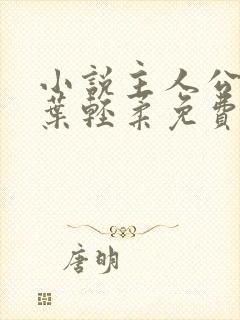 小説主人公
葉輕柔免費
唐明